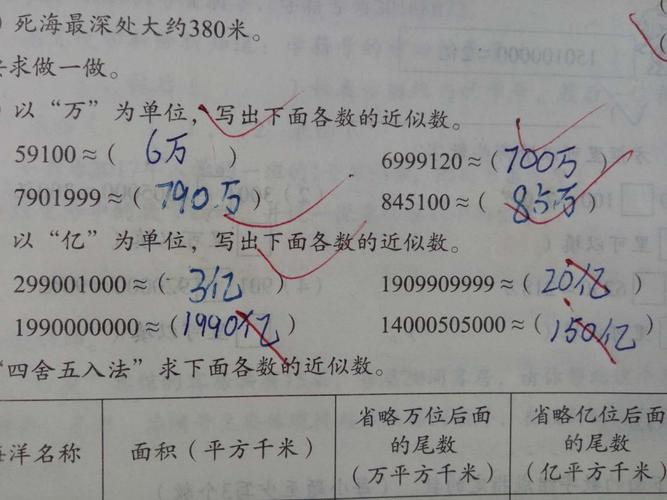 ) 死海最深处大约380米。
求做一做。
以“万”为单位，写出下面各数的近似数。
59100≈( 6万 ) 6999120≈(700万)
7901999≈(790万) 845100≈(85万)
以“亿”为单位，写出下面各数的近似数。
299001000≈( 3亿 ) 1909909999≈(20亿)
1990000000≈(1990亿) 14000505000≈(150亿)
“四舍五入法”求下面各数的近似数。
海洋名称 面积（平方千米） 省略万位后面的尾数（万平方千米） 省略亿位后面的尾数（亿平方千米）